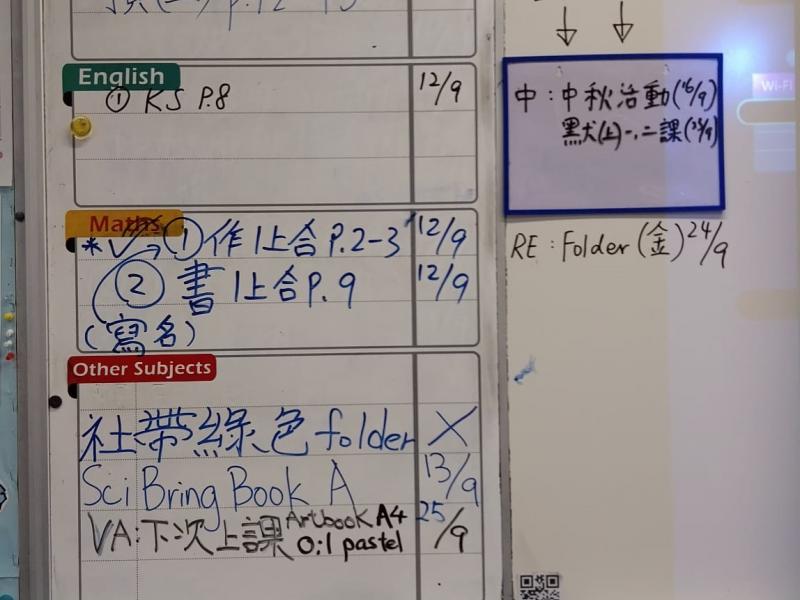 P.12-13
English
① KS P.8 12/9
Maths
*✓→①作1上合P.2-3 12/9
②書1上合P.9 12/9
(寫名)
Other Subjects
社帶綠色folder X
Sci Bring Book A 13/9
VA:下次上課 Artbook A4 25/9
O:l pastel
中:中秋活動(16/9)
黑犬(上)一,二課(13/9)
RE:Folder(金)24/9
Wi-Fi